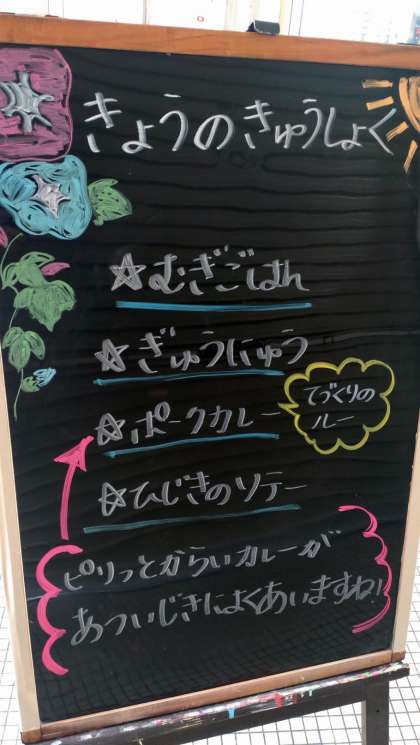 きょうのきゅうしょく
☆むぎごはん
☆ぎゅうにゅう
☆ポークカレー
てづくりの
ルー
☆ひじきのソテー
ピリッとからいカレーが
あついじきによくあいますね!